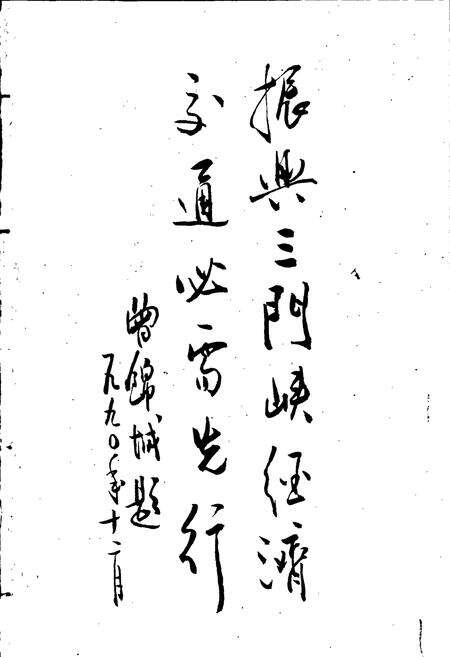 振興三門峡经濟
交通必需先行
曹錦城题
一九九〇年十二月